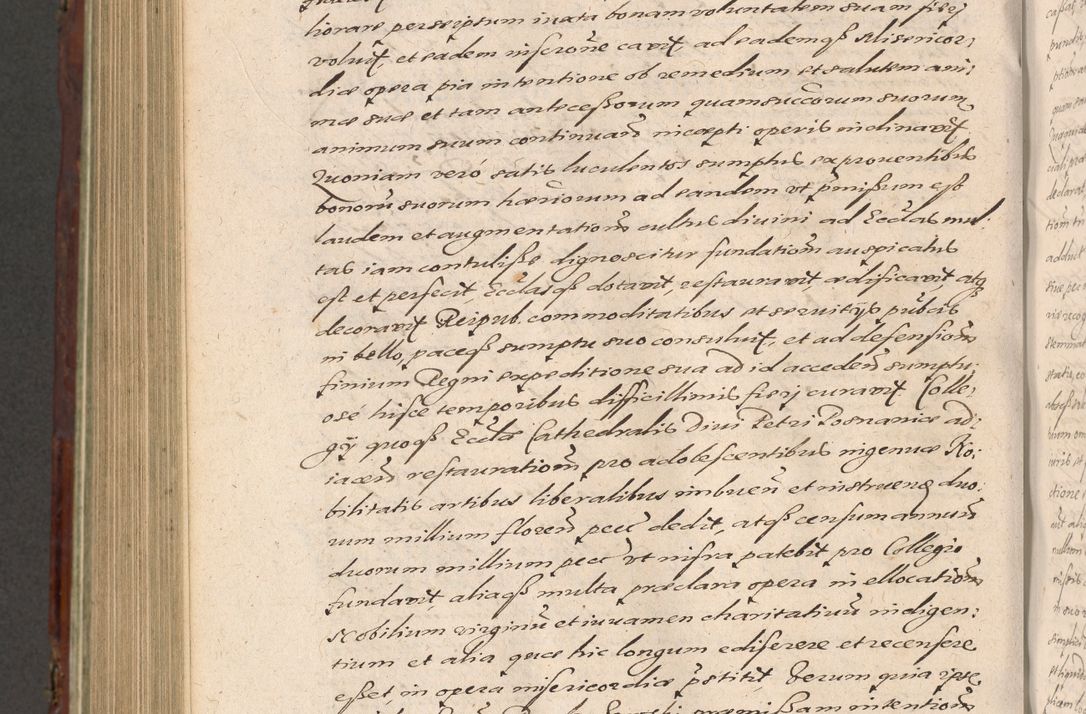 liorare perscriptum iuxta bonam voluntatem suam fierj
voluit, et eadem inscrone cavit ad eademq Misericor:
diæ opera pia intentione ob remedium et salutem ani:
mæ suæ et tam antecessorum quam succorum suorum
animum suum continuan incæpti operis inclinavit.
Quoniam veró satis luculentos sumptus ex proventibus
bonoru suorum hæriorum ad eandem vt pmissum est
laudem et augmentationem cultus divini ad Ecclas mul:
tas iam contulisse dignoscitur fundationem auspicatus
est et perfecit, Ecclasq dotavit, restauravit ædificavit, atq
decoravit Reipub. commoditatibus et servitijs publis
in bello, paceq sumptu suo consuluit, et ad defensionem
finium Regni expeditione sua ad id acceden sumptu:
osé hisce temporibus difficillimis fierj curavit. Colle:
gij quoq Ecclæ Cathedralis Divi Petri Posnaniæ ad:
iacen restaurationem pro adolescentibus ingenuæ No:
bilitatis artibus liberalibus imbuen et instruen duo:
rum millium floren pecc dedit, atq censum annuum
duorum millium pecc vt infra patebit pro Collegio
fundavit, aliaq multa præclara opera in ellocationem
Nobilium virginu et iuvamen charitativu indigen:
tium et alia quæ hic longum ediserere et recensere
esset, in opera misericordiæ pstitit, Verum quia ipse
præmissam intentionem